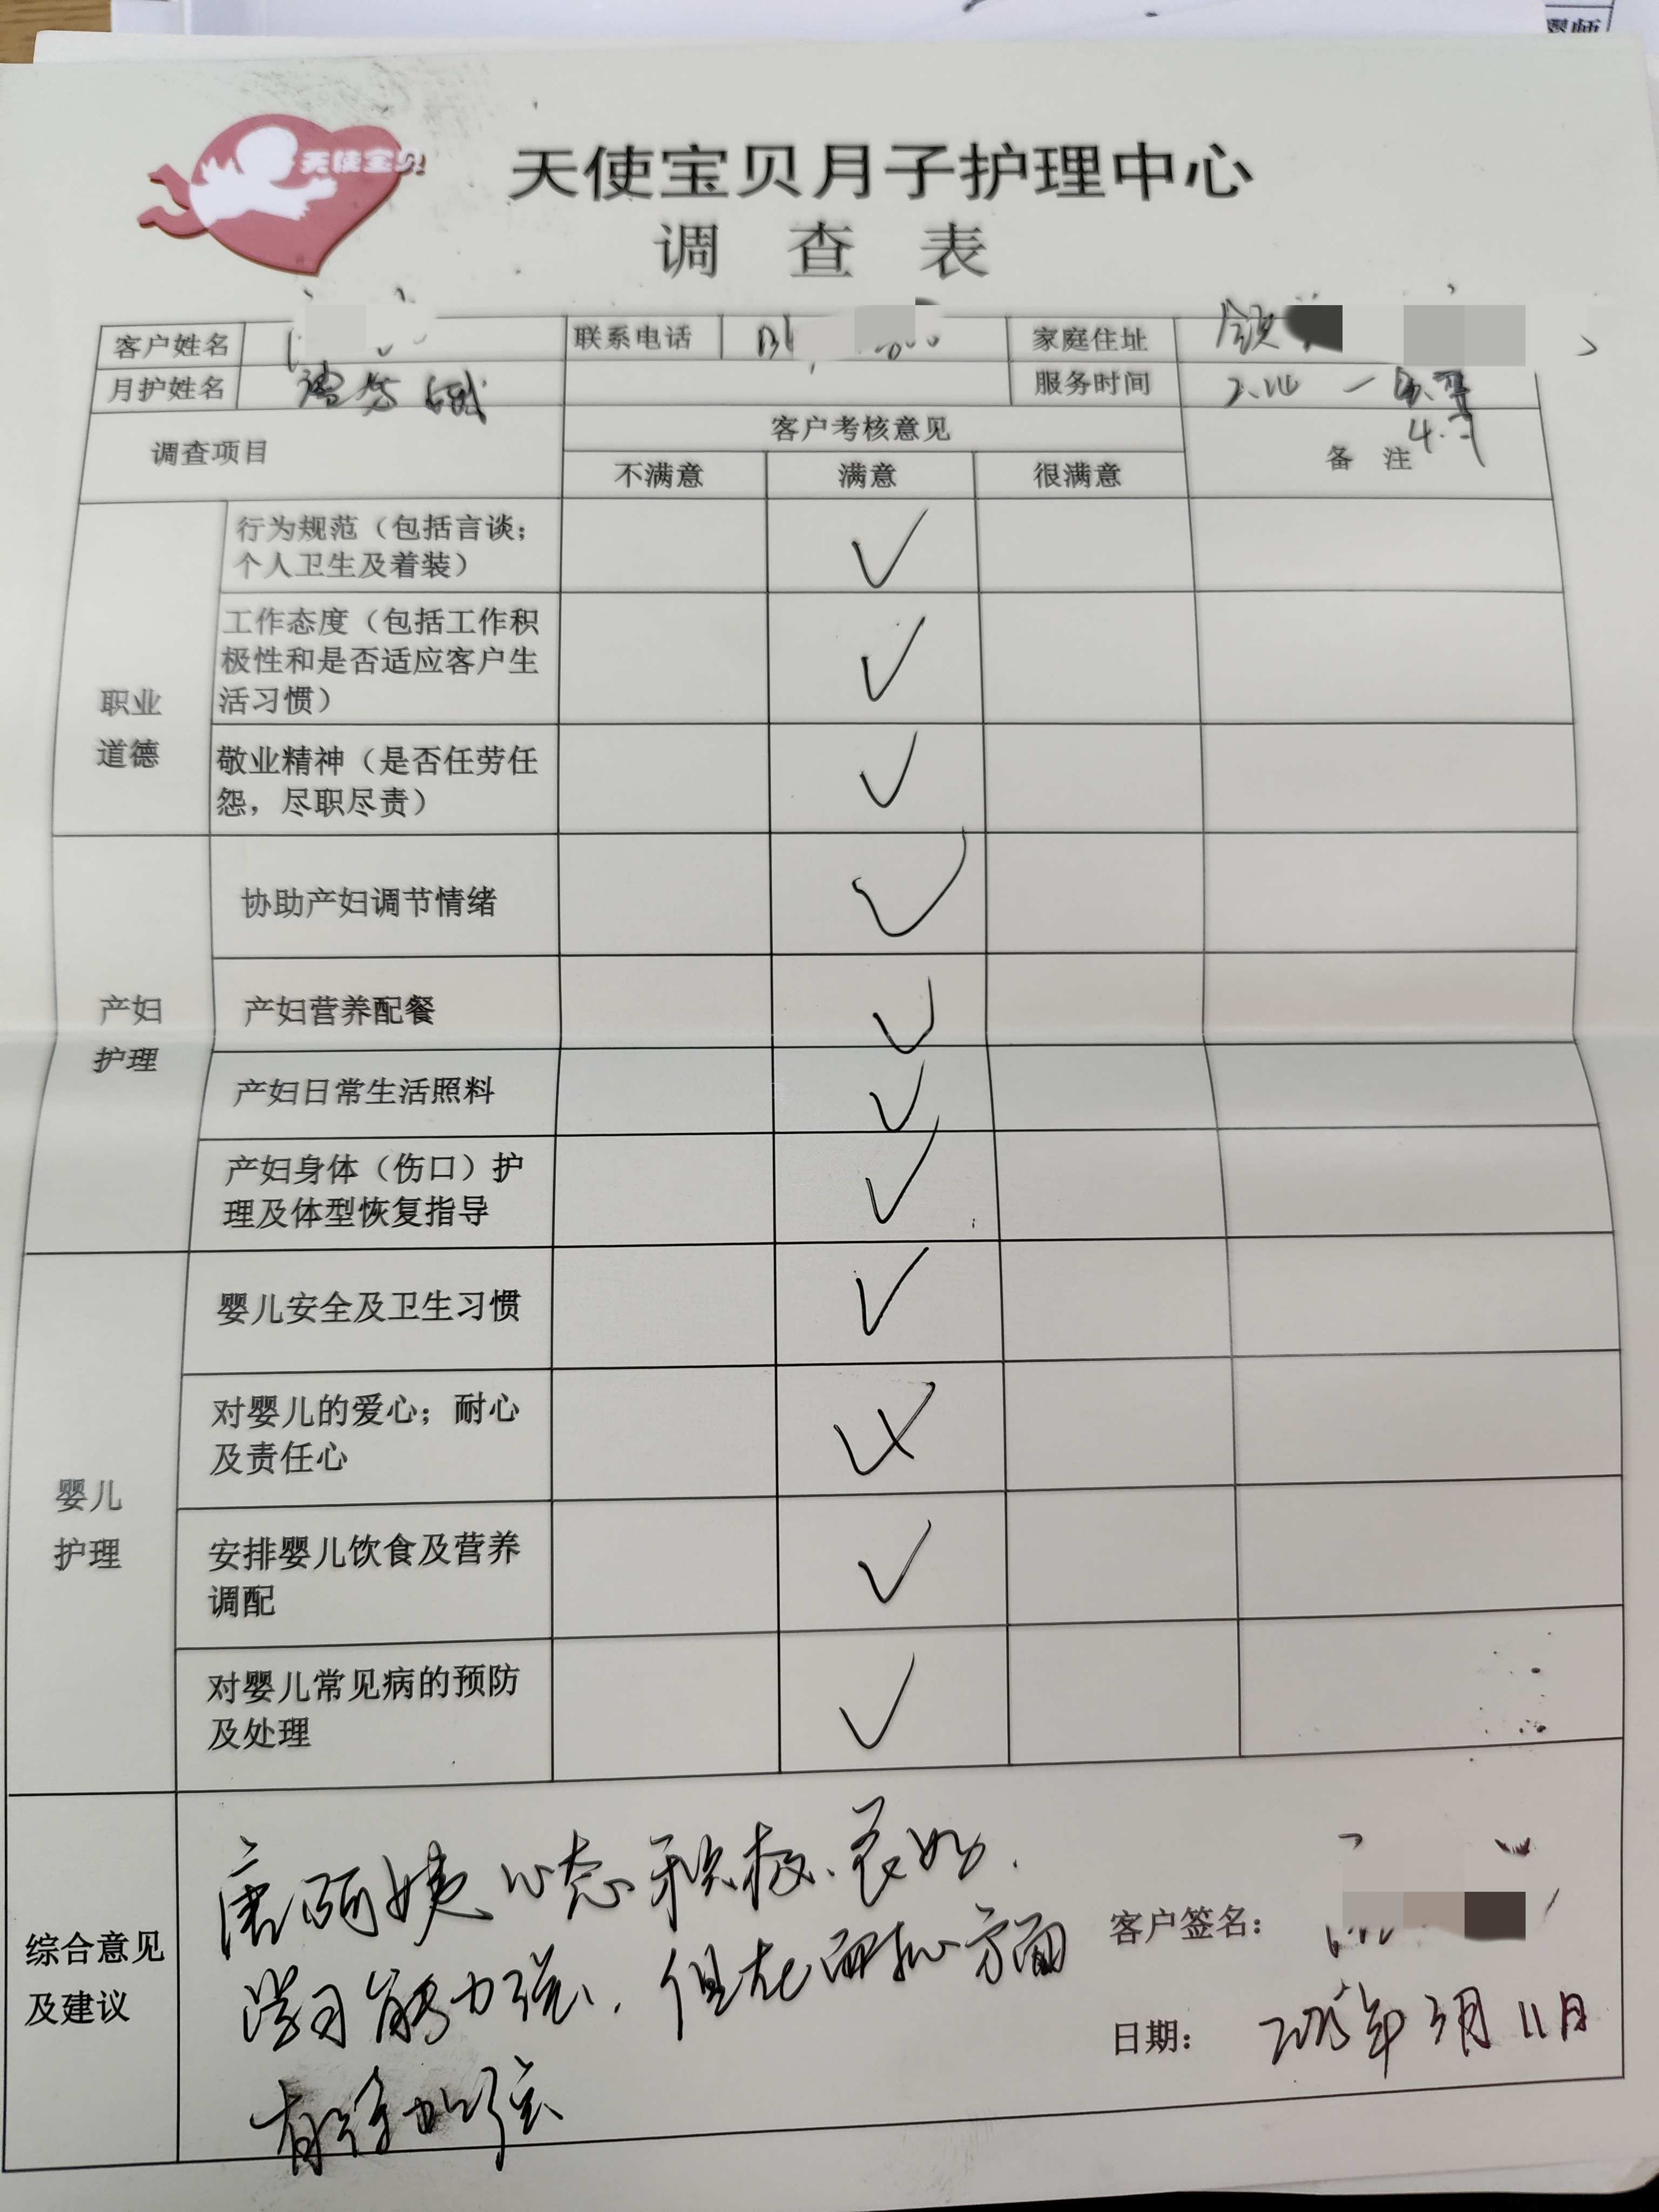 天使宝贝
天使宝贝月子护理中心
调 查 表
客户姓名 联系电话 家庭住址
月护姓名 服务时间
调查项目 客户考核意见 备 注
不满意 满意 很满意
职业
道德
行为规范（包括言谈；
个人卫生及着装）
工作态度（包括工作积
极性和是否适应客户生
活习惯）
敬业精神（是否任劳任
怨，尽职尽责）
产妇
护理
协助产妇调节情绪
产妇营养配餐
产妇日常生活照料
产妇身体（伤口）护
理及体型恢复指导
婴儿
护理
婴儿安全及卫生习惯
对婴儿的爱心；耐心
及责任心
安排婴儿饮食及营养
调配
对婴儿常见病的预防
及处理
综合意见
及建议
唐阿姨心态积极、良好.
学习能力强，但在面私方面
有待加强
客户签名：
日期： 3月11日